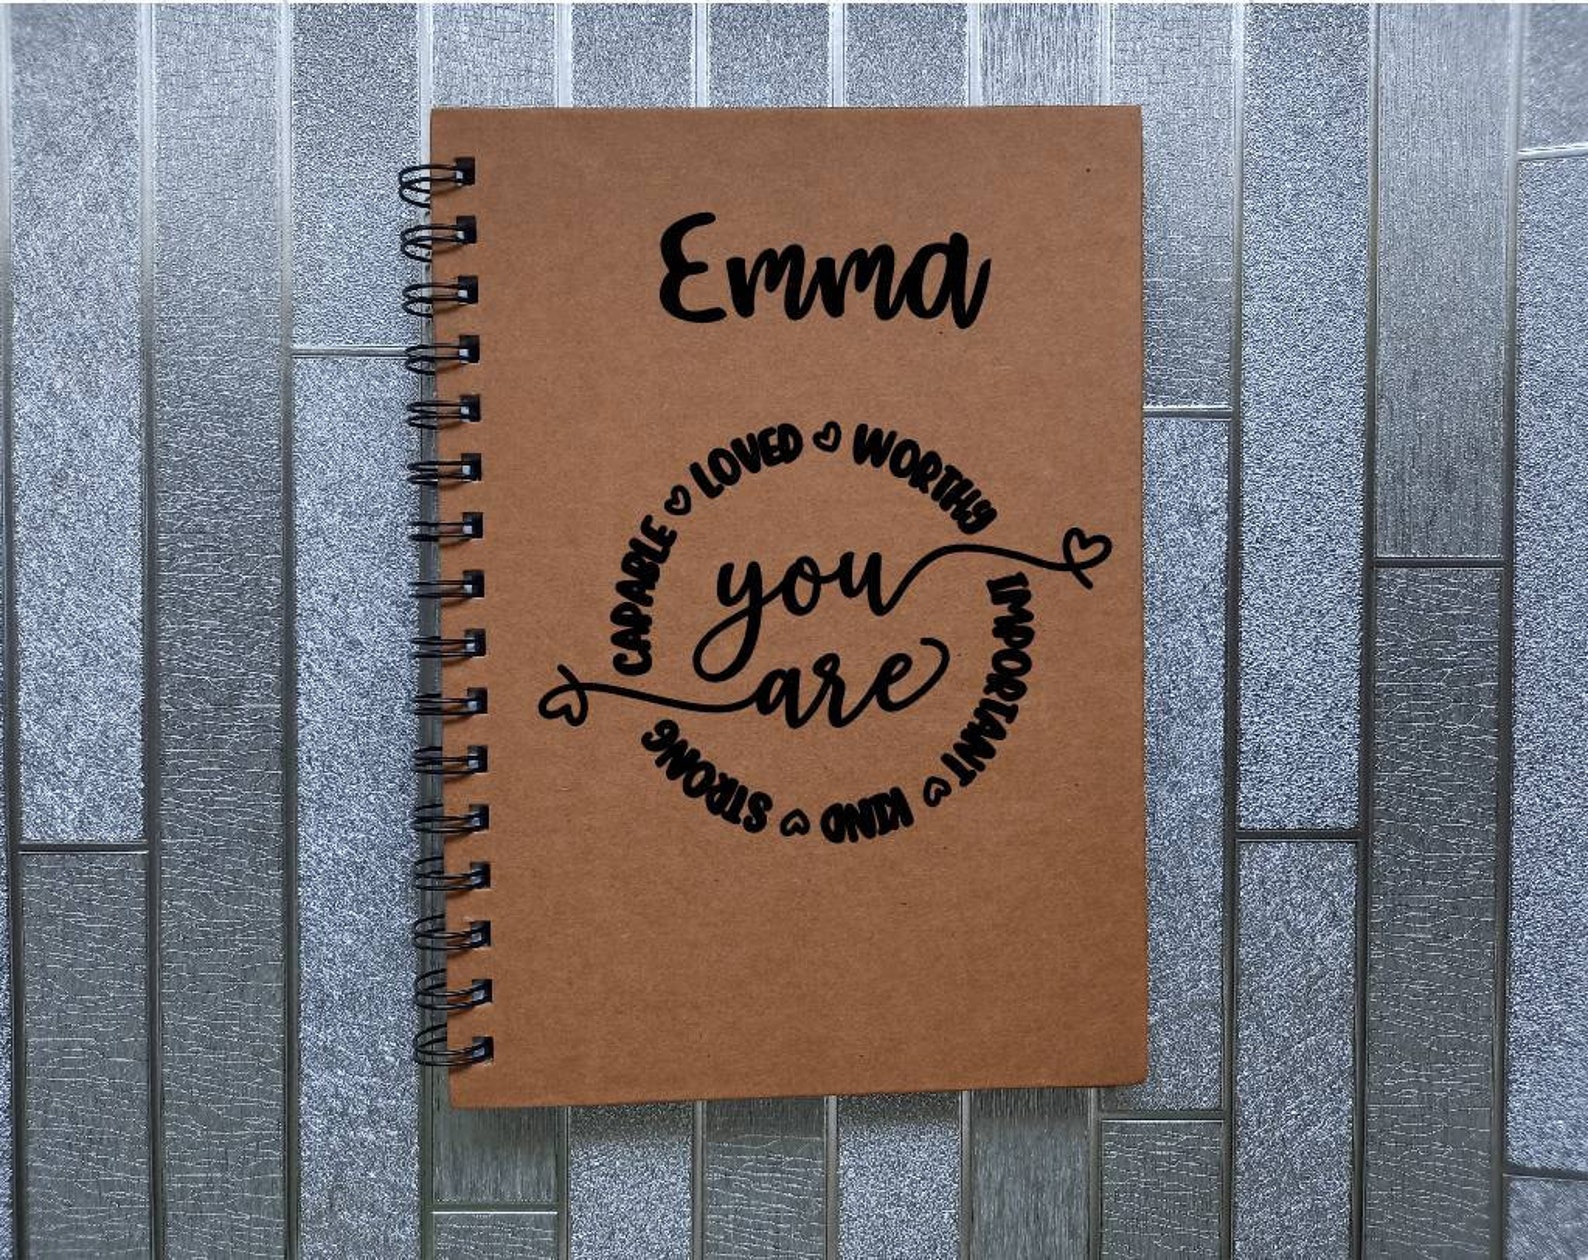 Emma
CAPABLE ♡ LOVED ♡ WORTHY
you
are
IMPORTANT ♡ KIND ♡ STRONG